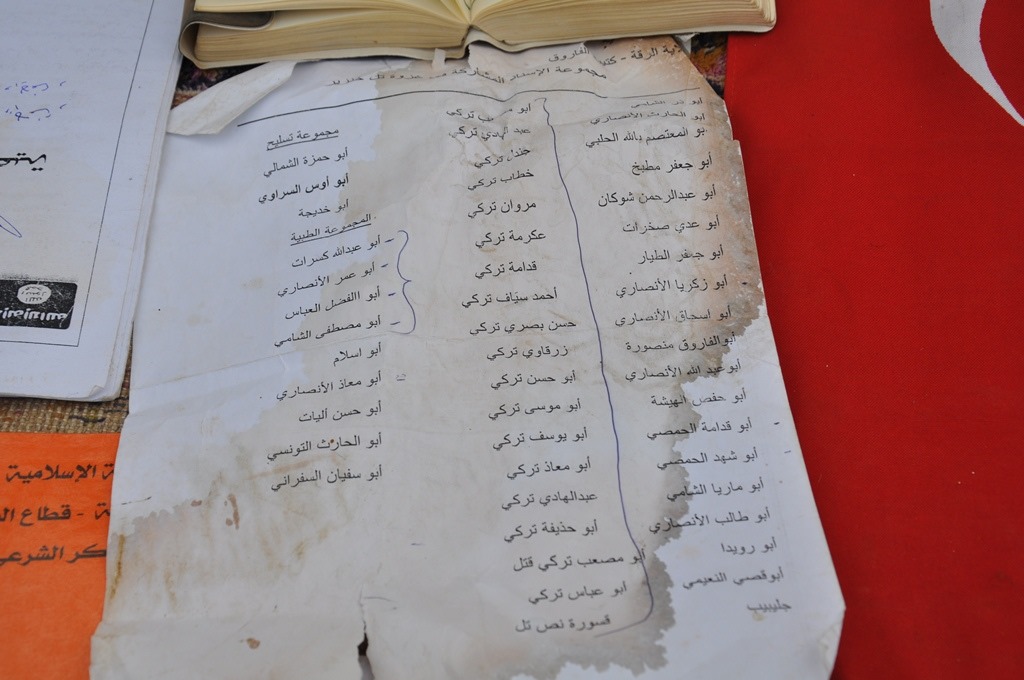 الرقة - كتا
الفاروق
مجموعة الإسناد المشاركة
تل خنزير
أبو ذر الشامي
أبو الحارث الأنصاري
أبو المعتصم بالله الحلبي
أبو جعفر مطبخ
أبو عبدالرحمن شوكان
أبو عدي صخرات
أبو جعفر الطيار
أبو زكريا الأنصاري -
أبو اسحاق الأنصاري
أبوالفاروق منصورة
أبوعبد الله الأنصاري
أبو حفص الهيشة
أبو قدامة الحمصي -
أبو شهد الحمصي -
أبو ماريا الشامي
أبو طالب الأنصاري
أبو رويدا
أبوقصي النعيمي
جليبيب
أبو تركي
عبد الهادي تركي
تركي
خطاب تركي
مروان تركي
عكرمة تركي
قدامة تركي
أحمد سيّاف تركي
حسن بصري تركي
زرقاوي تركي
أبو حسن تركي
أبو موسى تركي
أبو يوسف تركي
أبو معاذ تركي
عبدالهادي تركي
أبو حذيفة تركي
أبو مصعب تركي قتل
أبو عباس تركي
قسورة نص تل
مجموعة تسليح
أبو حمزة الشمالي
أبو أوس السراوي
أبو خديجة
المجموعة الطبية
- أبو عبدالله كسرات
- أبو عمر الأنصاري
- أبو االفضل العباس
- أبو مصطفى الشامي
أبو اسلام
أبو معاذ الأنصاري
أبو حسن آليات
أبو الحارث التونسي
أبو سفيان السفراني
ة الإسلامية
ة - قطاع ال
كر الشرعي